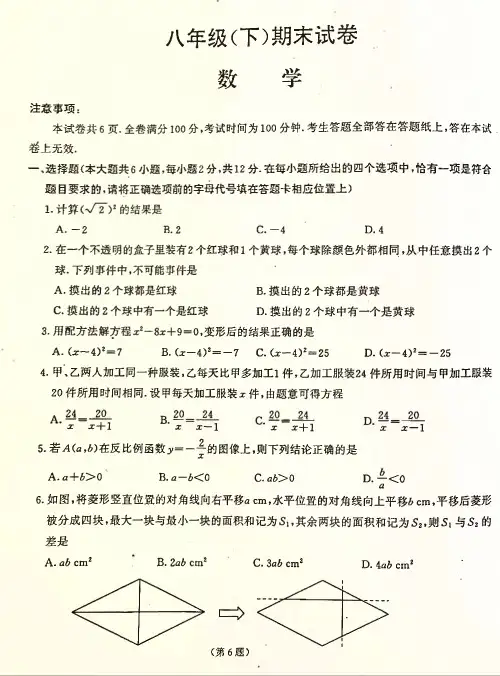 八年级(下)期末试卷
数 学
注意事项:
本试卷共6页.全卷满分100分,考试时间为100分钟.考生答题全部答在答题纸上,答在本试
卷上无效.
一、选择题(本大题共6小题,每小题2分,共12分.在每小题所给出的四个选项中,恰有一项是符合
题目要求的,请将正确选项前的字母代号填在答题卡相应位置上)
1.计算(√2)²的结果是
A.-2 B.2 C.-4 D.4
2.在一个不透明的盒子里装有2个红球和1个黄球,每个球除颜色外都相同,从中任意摸出2个
球.下列事件中,不可能事件是
A.摸出的2个球都是红球 B.摸出的2个球都是黄球
C.摸出的2个球中有一个是红球 D.摸出的2个球中有一个是黄球
3.用配方法解方程x²-8x+9=0,变形后的结果正确的是
A.(x-4)²=7 B.(x-4)²=-7 C.(x-4)²=25 D.(x-4)²=-25
4.甲、乙两人加工同一种服装,乙每天比甲多加工1件,乙加工服装24件所用时间与甲加工服装
20件所用时间相同.设甲每天加工服装x件,由题意可得方程
A.24/x=20/(x+1) B.20/x=24/(x-1) C.20/x=24/(x+1) D.24/x=20/(x-1)
5.若A(a,b)在反比例函数y=-2/x的图像上,则下列结论正确的是
A.a+b>0 B.a-b<0 C.ab>0 D.b/a<0
6.如图,将菱形竖直位置的对角线向右平移a cm,水平位置的对角线向上平移b cm,平移后菱形
被分成四块,最大一块与最小一块的面积和记为S₁,其余两块的面积和记为S₂,则S₁与S₂的
差是
A.ab cm² B.2ab cm² C.3ab cm² D.4ab cm²
(第6题)